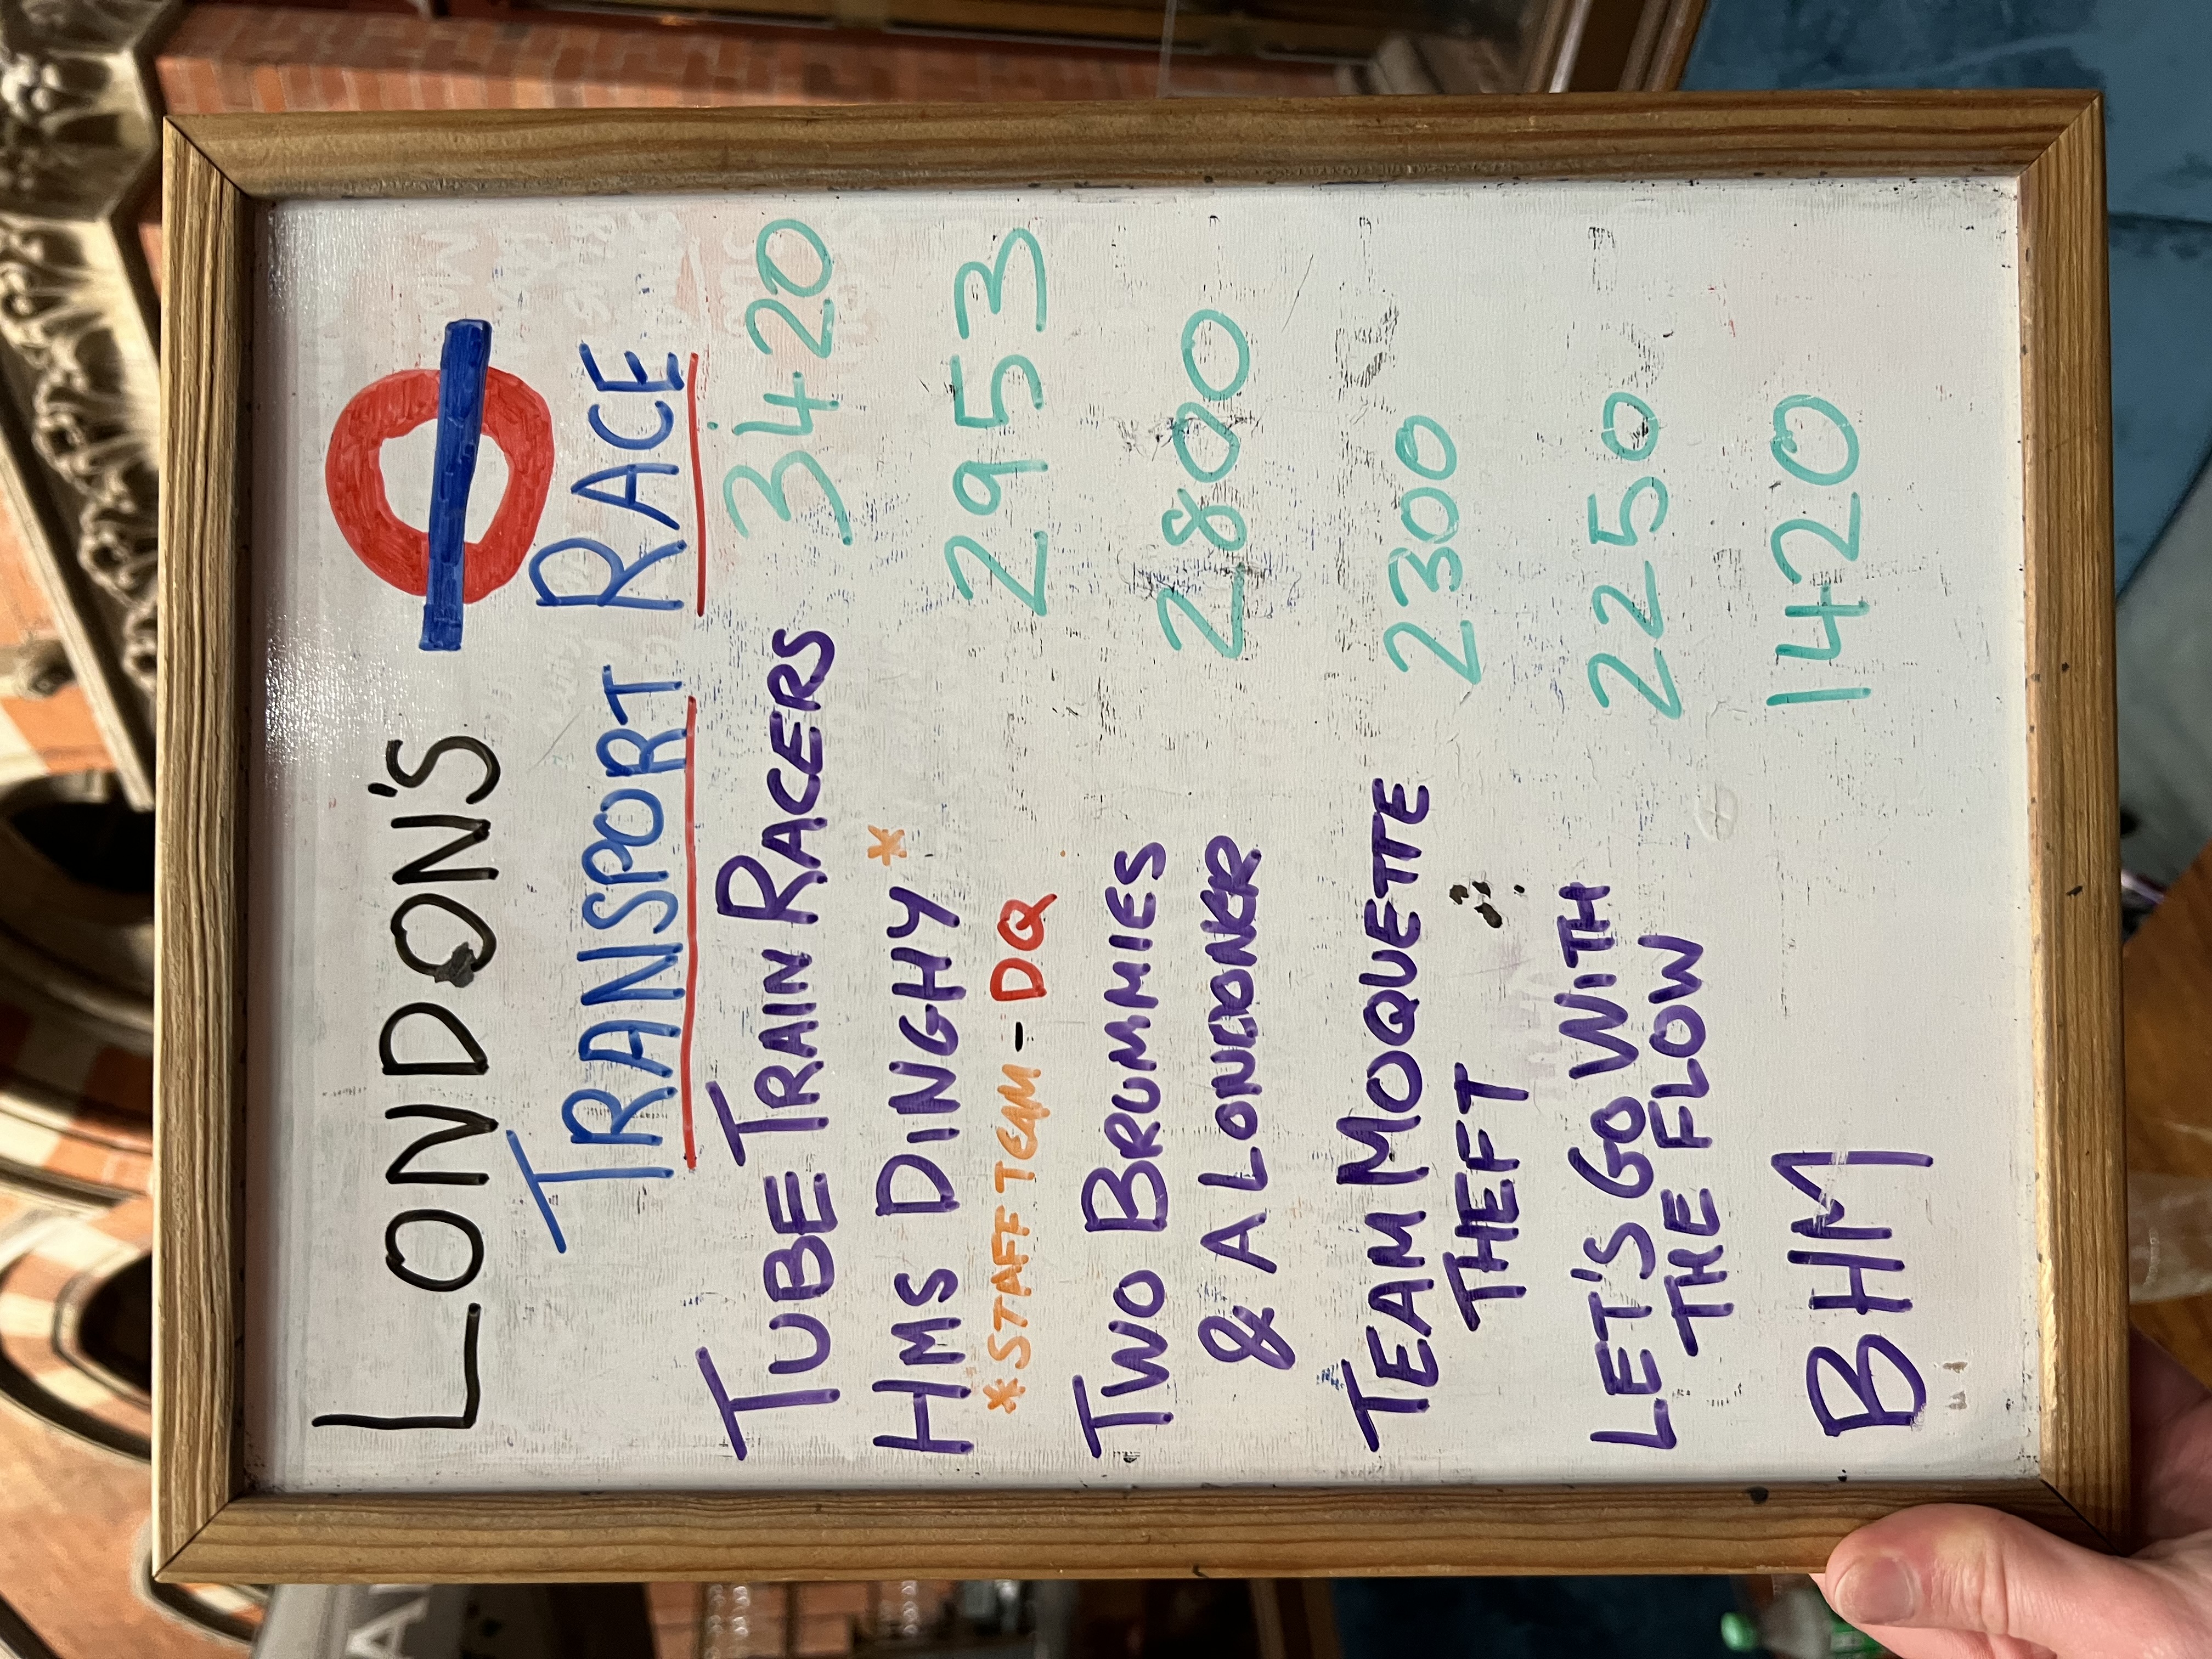 LONDON'S
TRANSPORT RACE
TUBE TRAIN RACERS 3420
HMS DINGHY* 2953
*STAFF TEAM - DQ
TWO BRUMMIES
& A LONDONER 2800
TEAM MOQUETTE 2300
THEFT
LET'S GO WITH 2250
THE FLOW
BHM 1420